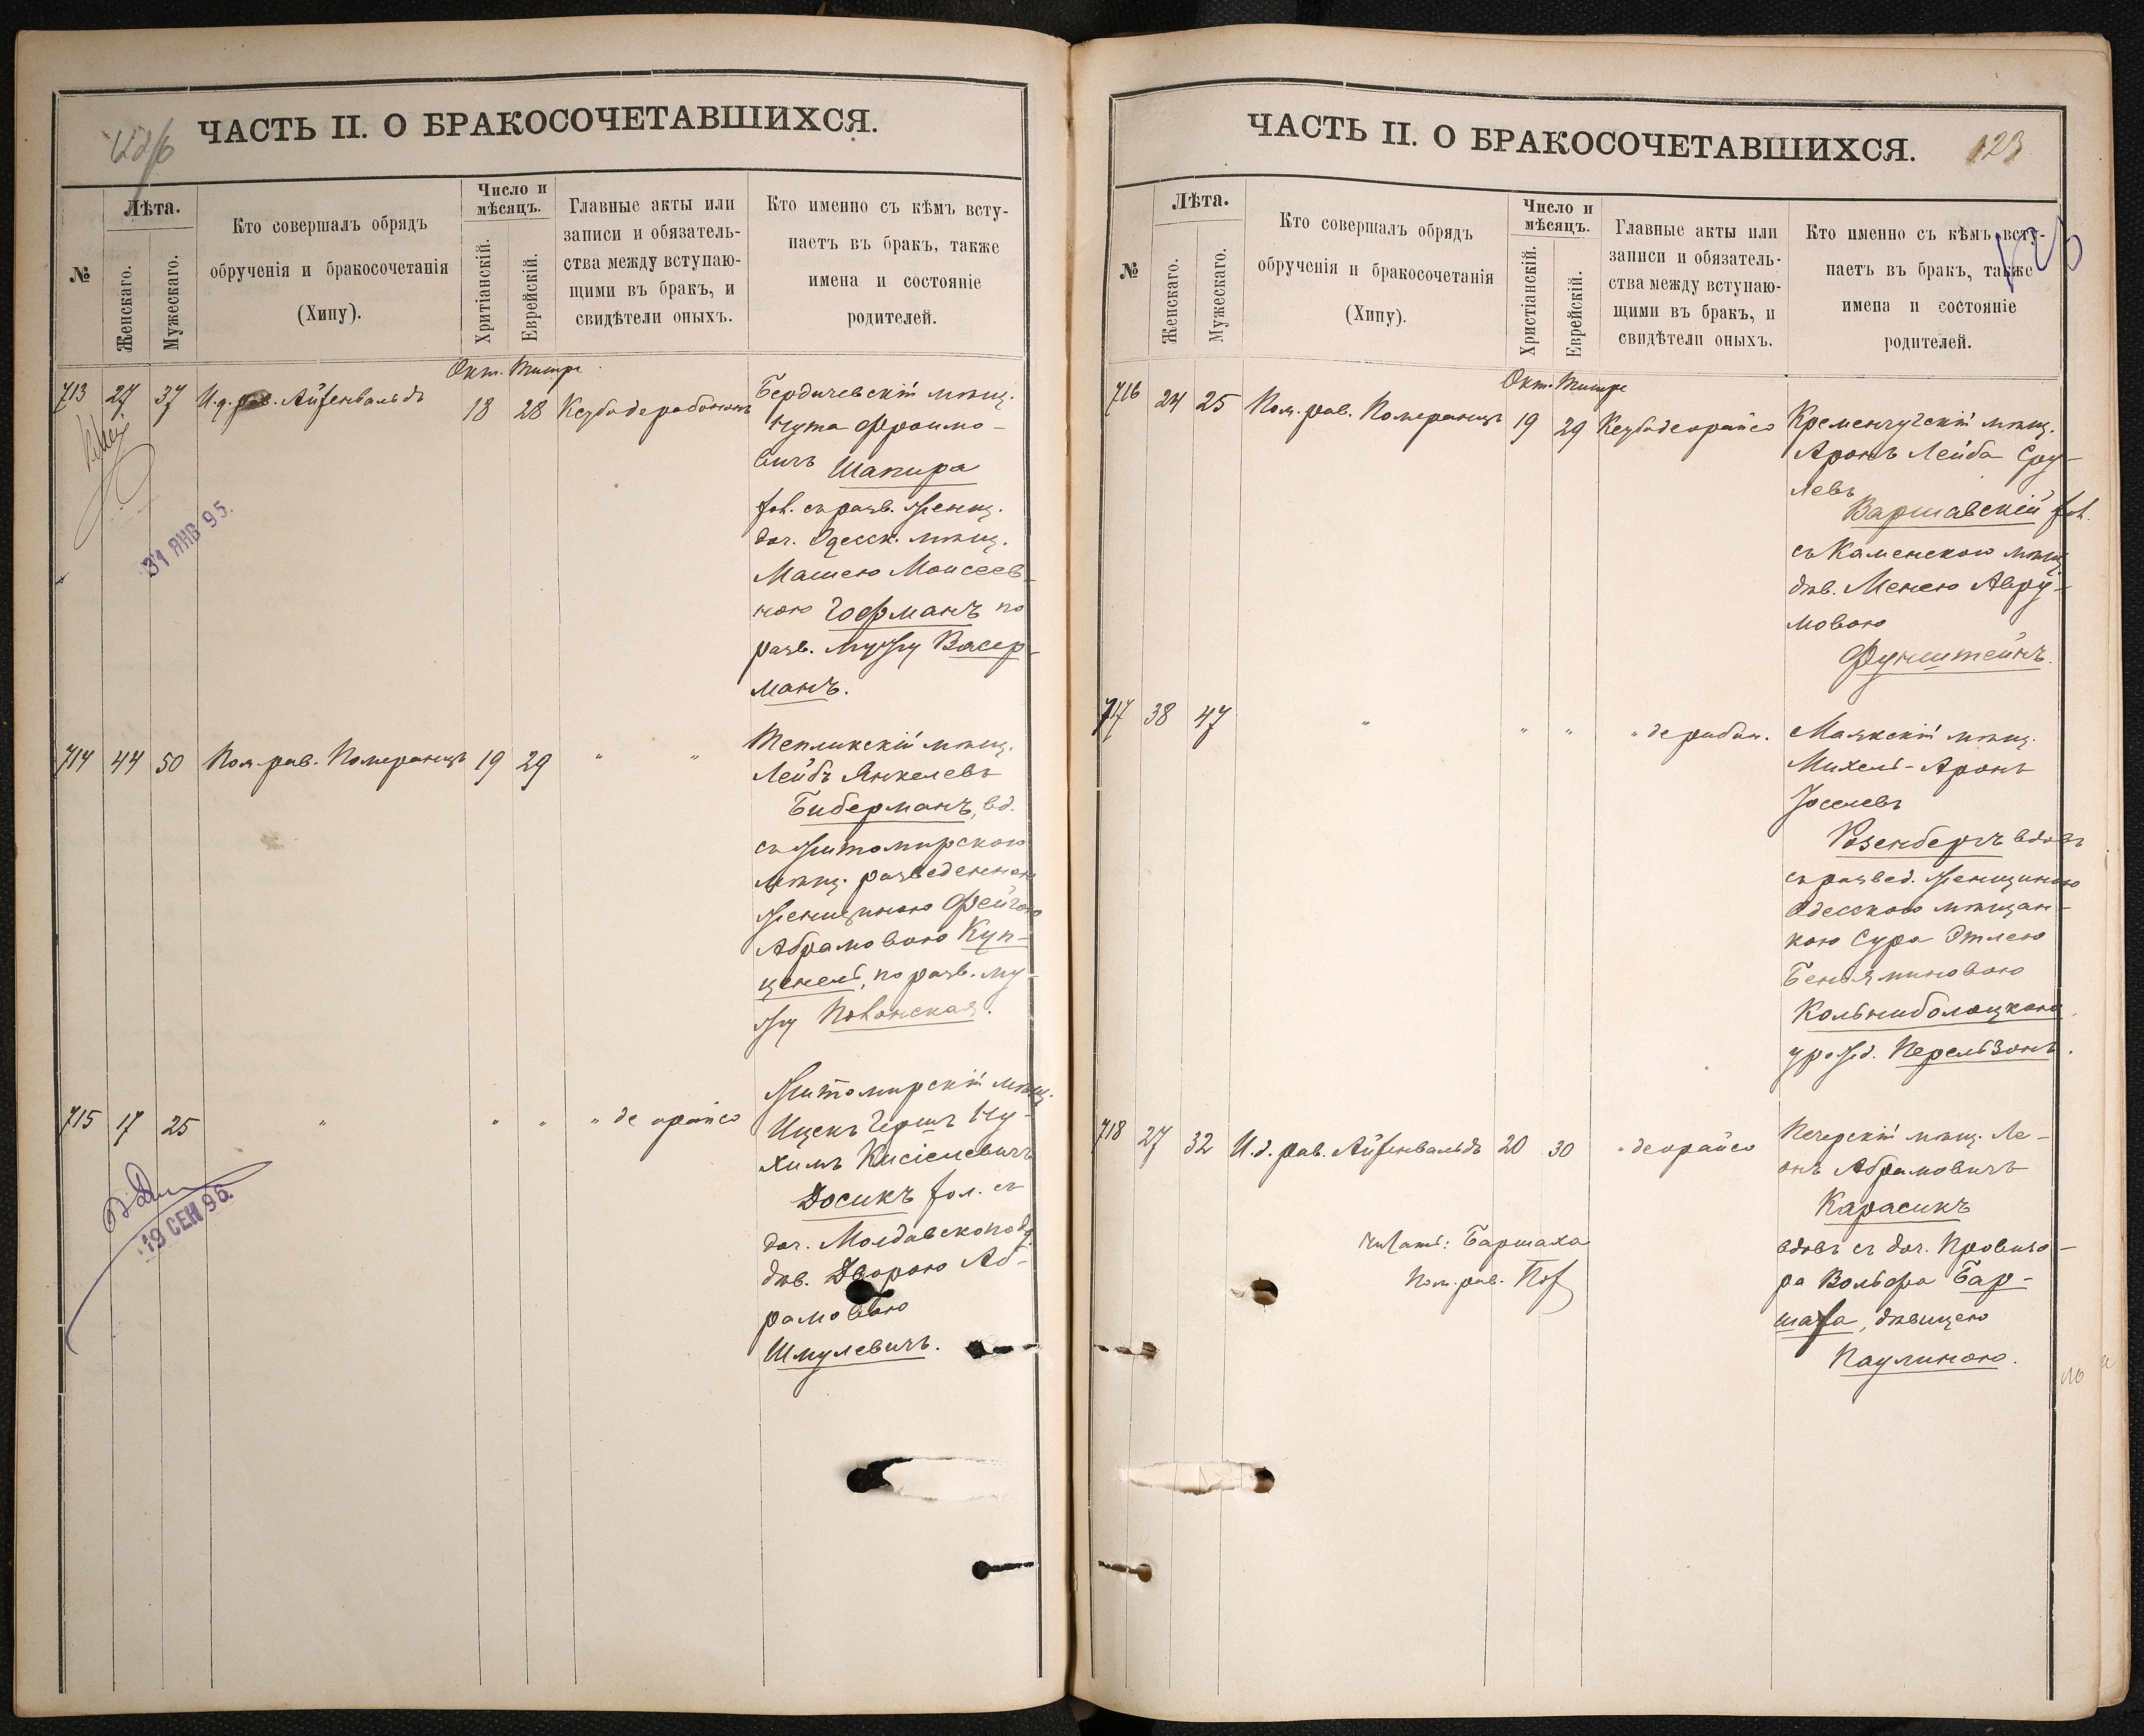 ЧАСТЬ II. О БРАКОСОЧЕТАВШИХСЯ.
№
Лѣта.
Женскаго.
Мужескаго.
Кто совершалъ обрядъ
обрученія и бракосочетанія
(Хипу).
Число и
мѣсяцъ.
Хритіанскій.
Еврейскій.
Главные акты или
записи и обязатель-
ства между вступаю-
щими въ бракъ, и
свидѣтели оныхъ.
Кто именно съ кѣмъ всту-
паетъ въ бракъ, также
имена и состояніе
родителей.
Окт. Тишре
713 27 37 И.д. рав. Айзенвальдъ 18 28
Бердичевскій мѣщ.
Нута Фроимо-
вичъ Шапира
хол. съ разв. женщ.
доч. Одесск. мѣщ.
Машею Моисеев-
ною Гофманъ по
разв. мужу Васер-
манъ.
31 ЯНВ 95.
714 44 50 Пом. рав. Померанцъ 19 29 " "
Тепликскій мѣщ.
Лейбъ Янкелевъ
Биберманъ, вд.
съ житомирскою
мѣщ. разведенною
женщиною Фейгою
Абрамовою Куп-
ценель, по разв. му-
жу
715 17 25 " " " " де орайсо
Житомирскій мѣщ.
Ицекъ Гершъ Ну-
химъ Кисіелевичъ
Досикъ хол. съ
доч. Молдавскоподд.
дѣв. Дворою Аб-
рамовою
Шмулевичъ.
19 СЕН 96.
ЧАСТЬ II. О БРАКОСОЧЕТАВШИХСЯ.
123
№
Лѣта.
Женскаго.
Мужескаго.
Кто совершалъ обрядъ
обрученія и бракосочетанія
(Хипу).
Число и
мѣсяцъ.
Христіанскій.
Еврейскій.
Главные акты или
записи и обязатель-
ства между вступаю-
щими въ бракъ, и
свидѣтели оныхъ.
Кто именно съ кѣмъ всту-
паетъ въ бракъ, также
имена и состояніе
родителей.
Окт. Тишре
716 24 25 Пом. рав. Померанцъ 19 29 Кезубо де орайсо
Кременчугскій мѣщ.
Аронъ Лейба Сру-
левъ
Варшавскій хол.
съ Каменскою мѣщ.
дѣв. Менею Авру-
мовою
Функштейнъ.
717 38 47 " " " " де рабон.
Маякскій мѣщ.
Михель-Аронъ
Іоселевъ
Розенбергъ вдовъ
съ развед. женщиною
Одесскою мѣщан-
кою Сура Этлею
Беньяминовою
урожд. Перельзонъ.
718 27 32 И.д. рав. Айзенвальдъ 20 30 " де орайсо
Печерскій мѣщ. Ле-
онъ Абрамовичъ
Карасикъ
вдовъ съ доч. Провизо-
ра Вольфа Бар-
шаха, дѣвицею
Паулиною.
Читать: Баршаха
Пом. рав.